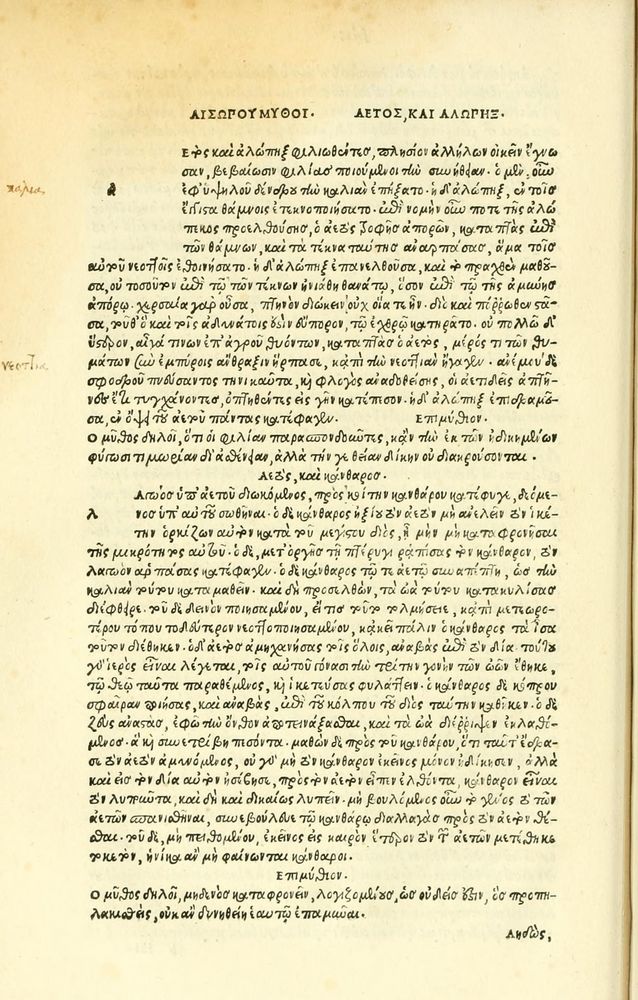 ΑΙΣΩΠΟΥ ΜΥΘΟΙ. ΑΕΤΟΣ, ΚΑΙ ΑΛΩΠΗΞ.
Ετὸς καὶ ἀλώπηξ φιλιωθέντες, πλησίον ἀλλήλων οἰκεῖν ἔγνω
σαν, βεβαίωσιν φιλίας ποιούμενοι τὴν συνήθειαν. ὁ μὲν οὖν
ἐφ' ὑψηλοῦ δένδρου τὴν καλιὰν ἐπήξατο. ἡ δ' ἀλώπηξ, ἐν τοῖς
ἔγγιστα θάμνοις ἐτεκνοποιήσατο. ἐπὶ νομὴν οὖν ποτε τῆς ἀλώ
πεκος προελθούσης, ὁ ἀετὸς τροφῆς ἀπορῶν, καταπτὰς ἐπὶ
τῶν θάμνων, καὶ τὰ τέκνα ταύτης ἀναρπάσας, ἅμα τοῖς
αὑτοῦ νεοττοῖς ἐθοινήσατο. ἡ δ' ἀλώπηξ ἐπανελθοῦσα, καὶ τὸ πραχθὲν μαθοῦ-
σα, οὐ τοσοῦτον ἐπὶ τῷ τῶν τέκνων ἠνιάθη θανάτῳ, ὅσον ἐπὶ τῷ τῆς ἀμύνης
ἀπόρῳ. χερσαία γὰρ οὖσα, πτηνὸν διώκειν οὐχ οἵα τε ἦν. διὸ καὶ πόῤῥωθεν στᾶ-
σα, τοῦθ' ὃ καὶ τοῖς ἀδυνάτοις ἐστὶν εὔπορον, τῷ ἐχθρῷ κατηρᾶτο. οὐ πολλῷ δ'
ὕστερον, αἶγά τινων ἐπ' ἀγροῦ θυόντων, καταπτὰς ὁ ἀετὸς, μέρος τι τῶν θυ-
μάτων σὺν ἐμπύροις ἄνθραξιν ἥρπασε, κἀπὶ τὴν νεοττιὰν ἤγαγεν. ἀνέμου δὲ
σφοδροῦ πνεύσαντος τηνικαῦτα, καὶ φλογὸς ἀναδοθείσης, οἱ ἀετιδεῖς ἀπτῆ-
νες ἔτι τυγχάνοντες, ὀπτηθέντες εἰς γῆν κατέπεσον. ἡ δ' ἀλώπηξ ἐπιδραμοῦ-
σα, ἐν ὄψει τοῦ ἀετοῦ πάντας κατέφαγεν. Επιμύθιον.
Ο μῦθος δηλοῖ, ὅτι οἱ φιλίαν παρασπονδοῦντες, κἂν τὴν ἐκ τῶν ἠδικημένων
φύγωσι τιμωρίαν δι' ἀσθένειαν, ἀλλὰ τήν γε θείαν δίκην οὐ διακρούσονται.
Αετὸς, καὶ κάνθαρος.
Λαγωὸς ὑπ' ἀετοῦ διωκόμενος, πρὸς κοίτην κανθάρου κατέφυγε, δεόμε-
νος ὑπ' αὐτοῦ σωθῆναι. ὁ δὲ κάνθαρος ἠξίου τὸν ἀετὸν μὴ ἀνελεῖν τὸν ἱκέ-
την, ὁρκίζων αὐτὸν κατὰ τοῦ μεγίστου διὸς, ἦ μὴν μὴ καταφρονῆσαι
τῆς μικρότητος αὐτοῦ. ὁ δὲ, μετ' ὀργῆς τῇ πτέρυγι ῥαπίσας τὸν κάνθαρον, τὸν
λαγωὸν ἁρπάσας κατέφαγεν. ὁ δὲ κάνθαρος τῷ τε ἀετῷ συναπέπτη, ὡς τὴν
καλιὰν τούτου καταμαθεῖν. καὶ δὴ προσελθὼν, τὰ ὠὰ τούτου κατακυλίσας
διέφθειρε. τοῦ δὲ δεινὸν ποιησαμένου, εἴ τις τοῦτο τολμήσειε, κἀπὶ μετεωρο-
τέρου τόπου τὸ δεύτερον νεοττοποιησαμένου, κἀκεῖ πάλιν ὁ κάνθαρος τὰ ἴσα
τοῦτον διέθηκεν. ὁ δ' ἀετὸς ἀμηχανήσας τοῖς ὅλοις, ἀναβὰς ἐπὶ τὸν δία τούτου
γὰρ ἱερὸς εἶναι λέγεται, τοῖς αὐτοῦ γόνασι τὴν τρίτην γονὴν τῶν ὠῶν ἔθηκε,
τῷ θεῷ ταῦτα παραθέμενος, καὶ ἱκετεύσας φυλάττειν. ὁ κάνθαρος δὲ κόπρου
σφαῖραν ποιήσας, καὶ ἀναβὰς, ἐπὶ τοῦ κόλπου τοῦ διὸς ταύτην καθῆκεν. ὁ δὲ
ζεὺς ἀναστὰς, ἐφ' ᾧ τὴν ὄνθον ἀποτινάξασθαι, καὶ τὰ ὠὰ διέῤῥιψεν ἐκλαθό-
μενος. ἃ καὶ συνετρίβη πεσόντα. μαθὼν δὲ πρὸς τοῦ κανθάρου, ὅτι ταῦτ' ἔδρα-
σε τὸν ἀετὸν ἀμυνόμενος, οὐ γὰρ δὴ τὸν κάνθαρον ἐκεῖνος μόνον ἠδίκησεν, ἀλλὰ
καὶ εἰς τὸν δία αὐτὸν ἠσέβησε, πρὸς τὸν ἀετὸν εἶπεν ἐλθόντα, κάνθαρον εἶναι
τὸν λυποῦντα, καὶ δὴ καὶ δικαίως λυπεῖν. μὴ βουλόμενος οὖν τὸ γένος τὸ τῶν
ἀετῶν σπανισθῆναι, συνεβούλευε τῷ κανθάρῳ διαλλαγὰς πρὸς τὸν ἀετὸν θέ-
σθαι. τοῦ δὲ, μὴ πειθομένου, ἐκεῖνος εἰς καιρὸν ἕτερον τὸν τῶν ἀετῶν μετέθηκε
τοκετὸν, ἡνίκα ἂν μὴ φαίνωνται κάνθαροι.
Επιμύθιον.
Ο μῦθος δηλοῖ, μηδενὸς καταφρονεῖν, λογιζομένους, ὡς οὐδείς ἐστιν, ὃς προπη-
λακισθεὶς, οὐκ ἂν δυνηθείη ἑαυτῷ ἐπαμῦναι.
Αηδὼν,